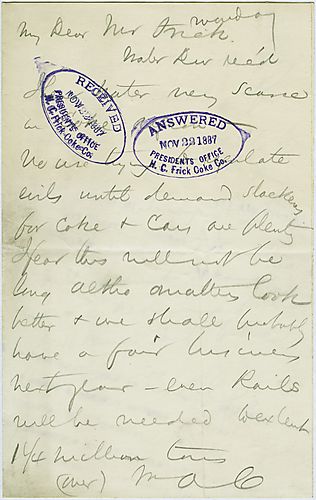 Monday
My Dear Mr Frick.
Note Due rec'd
water very scarce
RECEIVED
NOV 22 1887
PRESIDENTS OFFICE
H. C. Frick Coke Co.
ANSWERED
NOV 22 1887
PRESIDENTS OFFICE
H. C. Frick Coke Co.
No use
evils until demand slackens
for Coke & Cars are plenty
I fear this will not be
long altho matters look
better & we shall probably
have a fair business
next year – even Rails
will be needed to extent
1¼ million tons
(over) M A C